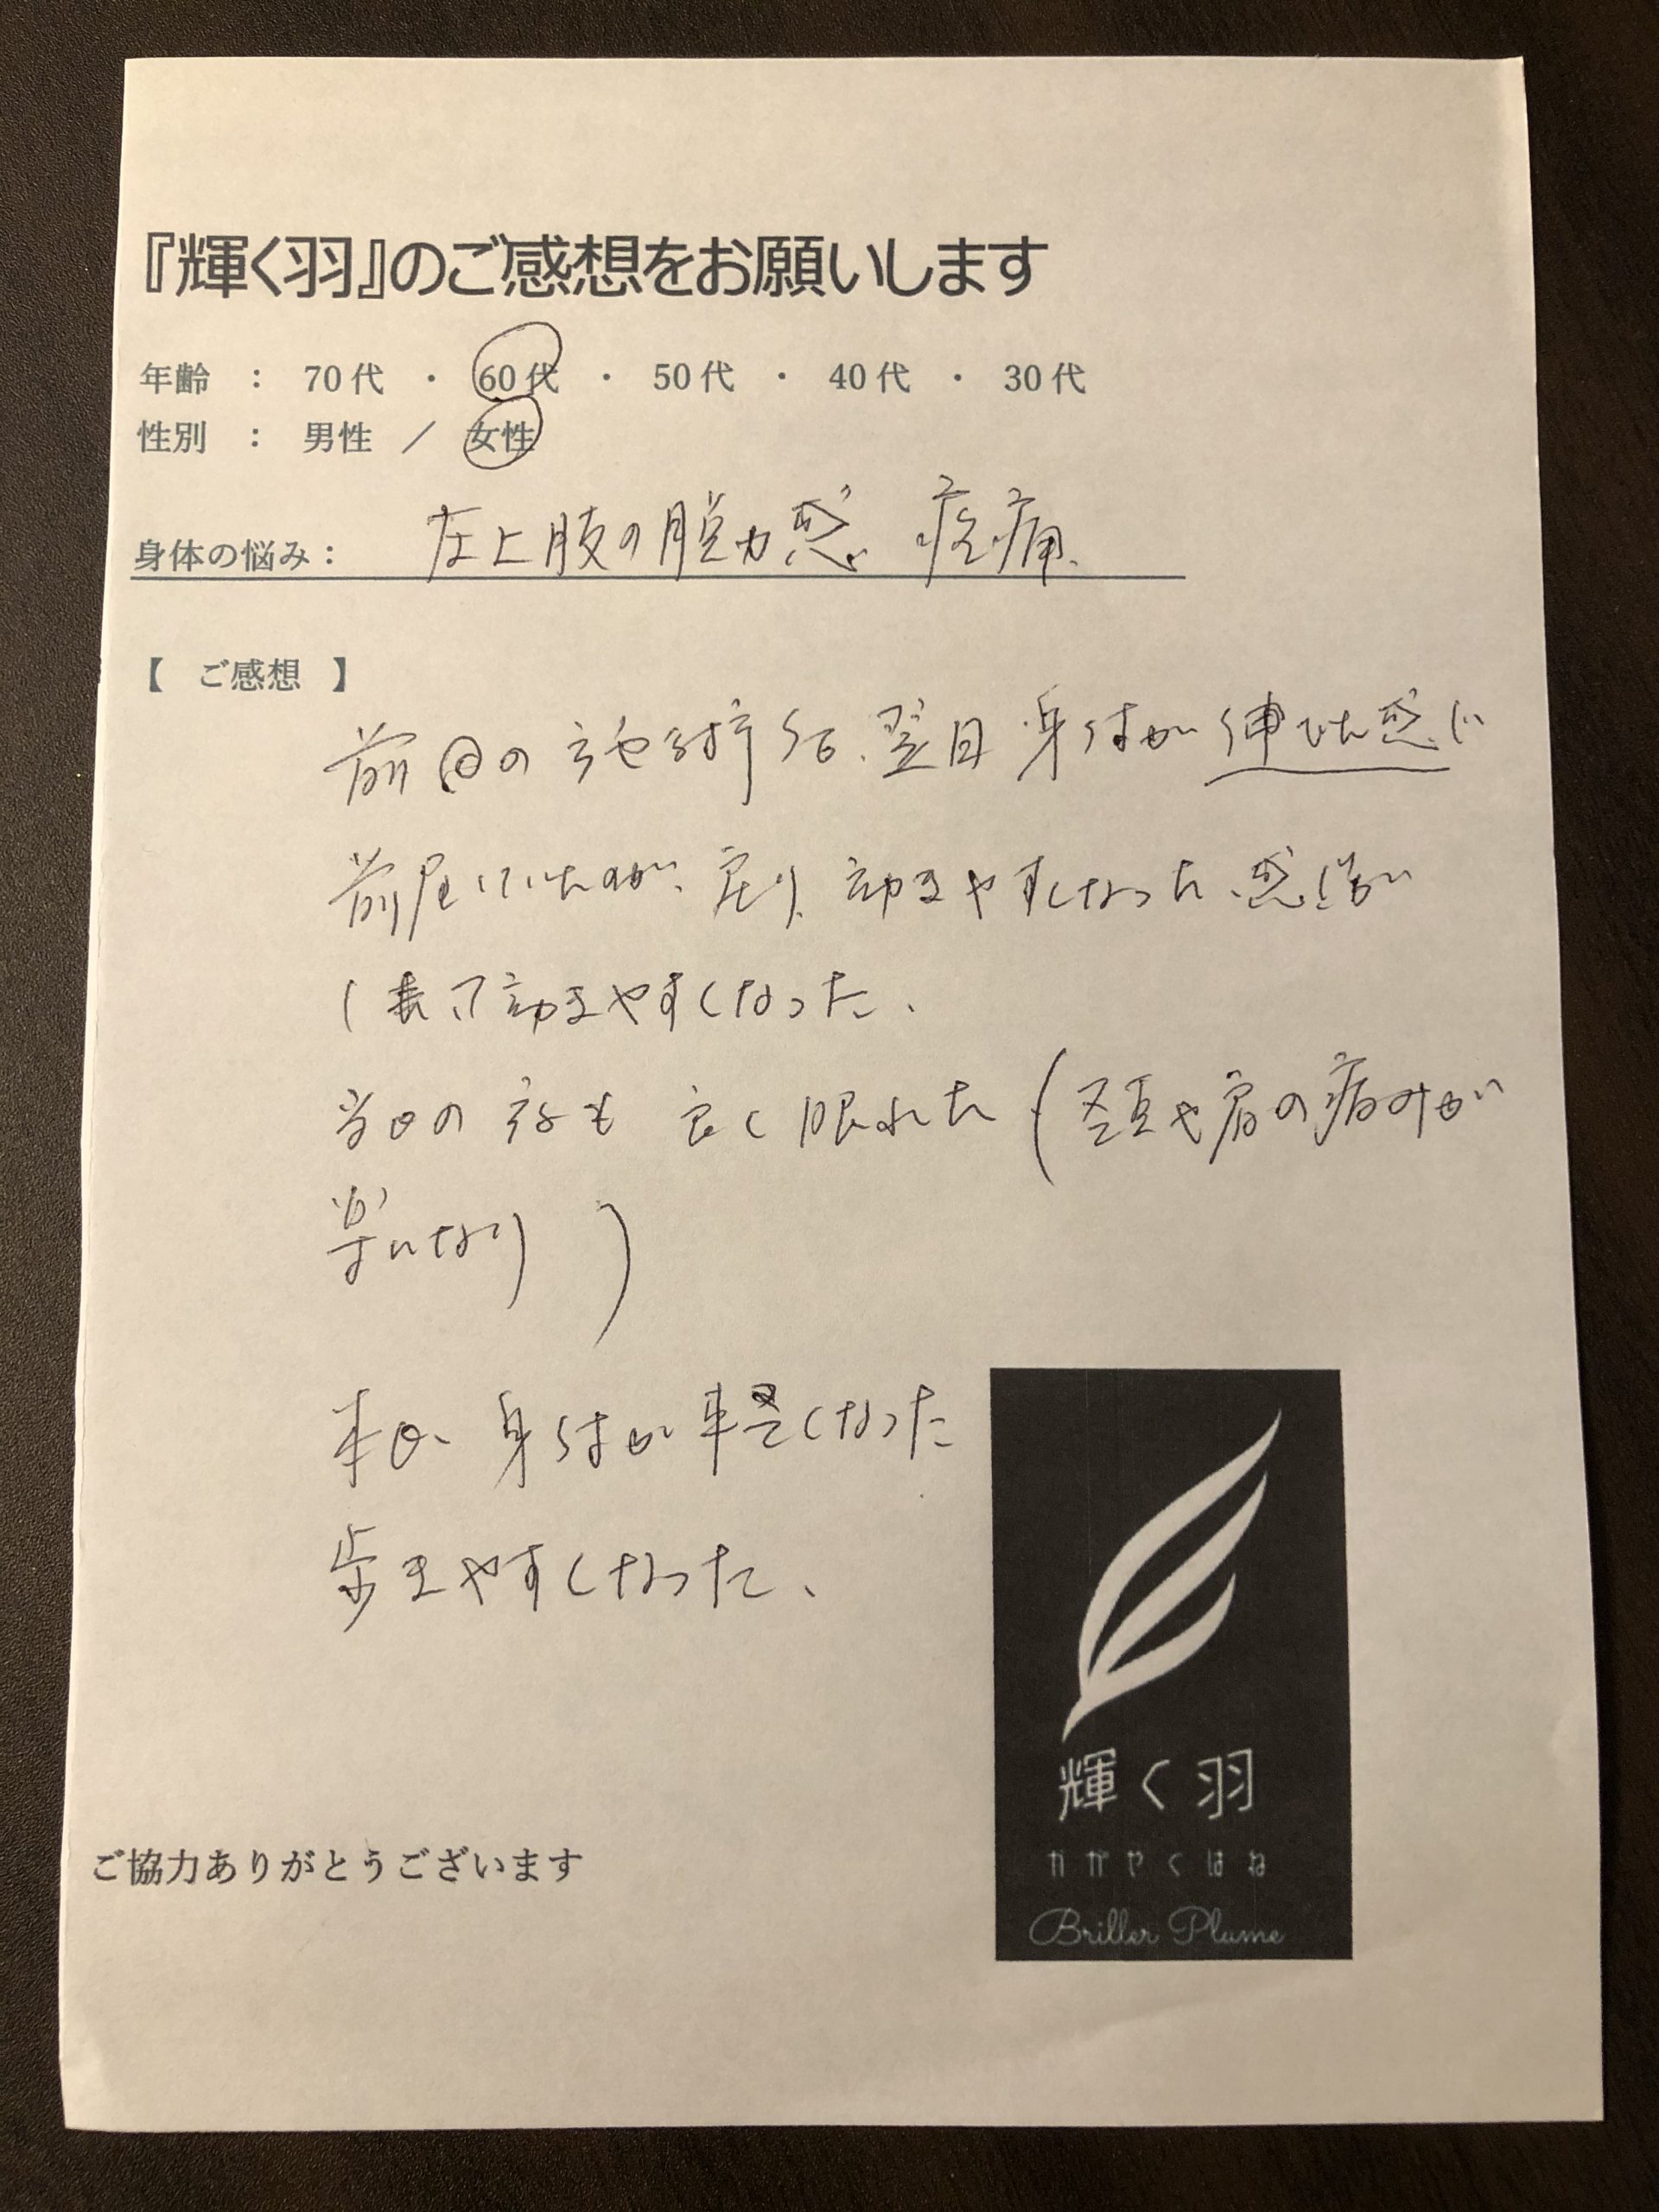 『輝く羽』のご感想をお願いします
年齢 ： 70代 ・ 60代 ・ 50代 ・ 40代 ・ 30代
性別 ： 男性 ／ 女性
身体の悩み： 左上肢の脱力感 疼痛、
【 ご感想 】
前回の 後、翌日 身体が 伸びた感じ
前屈していたのが、戻り、動きやすくなった、感じが
して動きやすくなった、
当日の 夜も 良く眠れた (頚や肩の痛みが
楽になり )
本日、身体が軽くなった
歩きやすくなった、
輝く羽
かがやくはね
Briller Plume
ご協力ありがとうございます